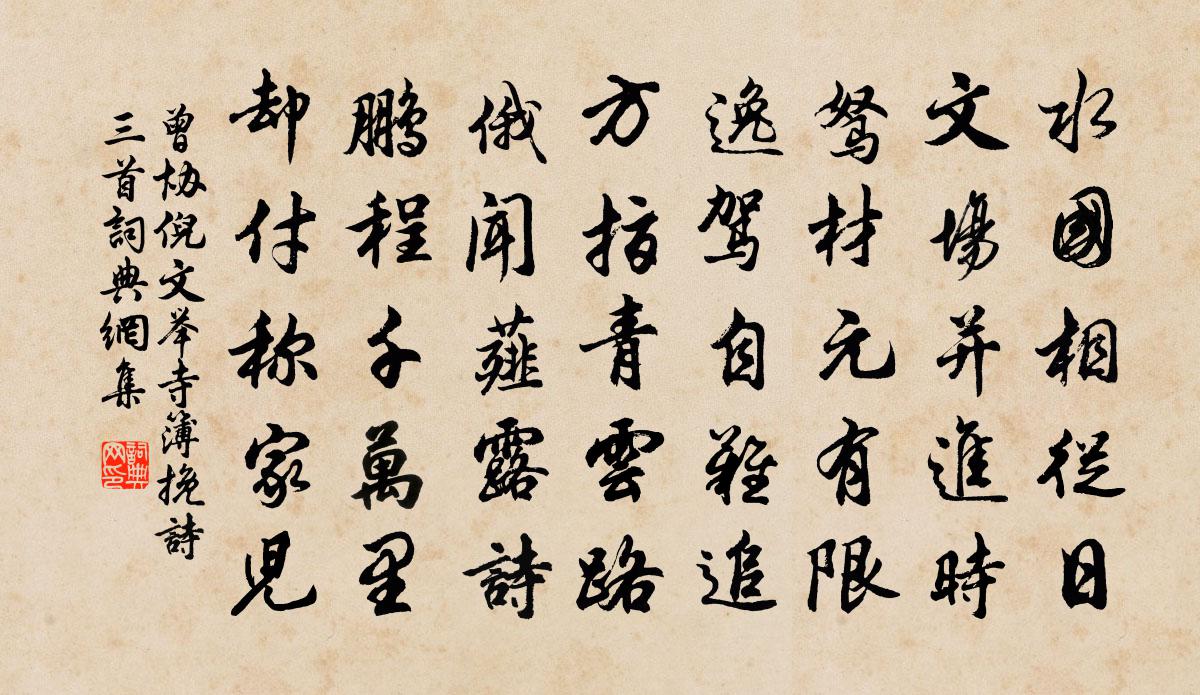 水國相從日
文場并進時
駑材元有限
逸駕自難追
方指青雲路
俄聞薤露詩
鵬程千萬里
却付称家兒
曾协倪文举寺簿挽詩
三首詞典網集
詞典
网印